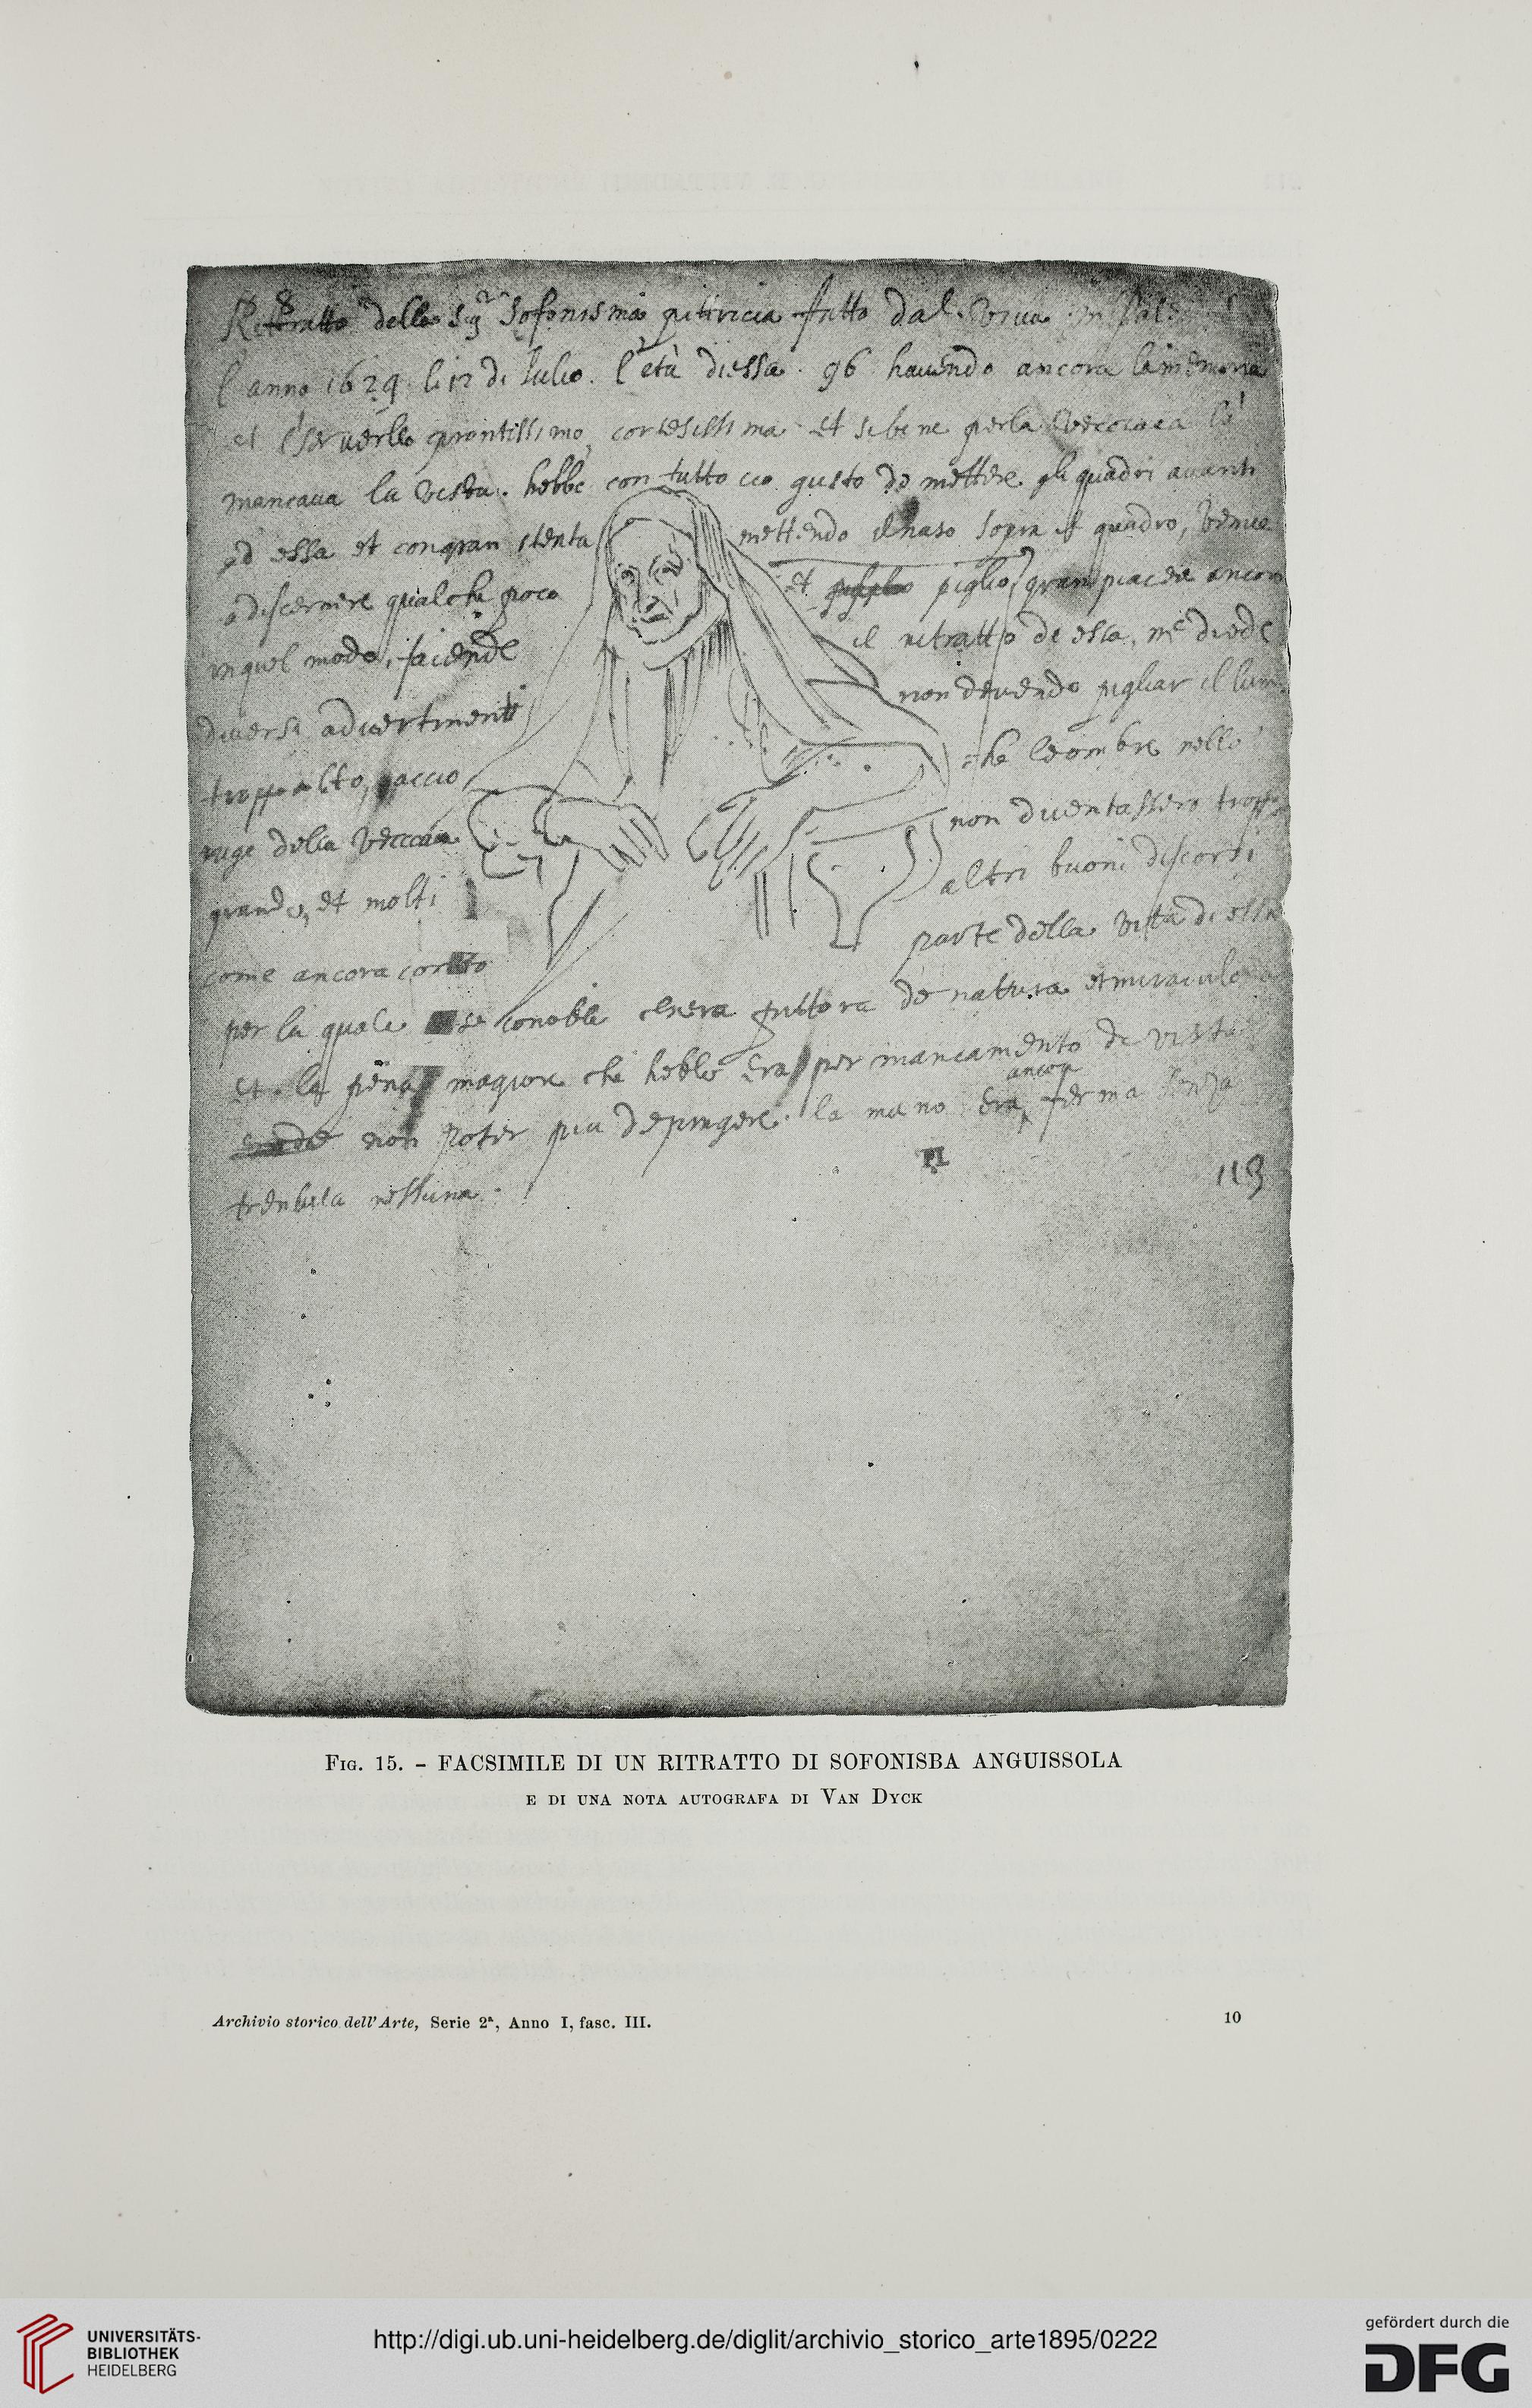 Rittratto della Sigra Sofonisma pittricia fatto dal vivo in Pal
l'anno 1629 li 12 di Julio. l'età di essa. 96 havendo ancora la memoria
et il serverllo prontissimo, cortesissima et sebene per la vecciaea le
mancava la vista. hebbe con tutto cio gusto de mettere gli quadri avanti
ed essa et con gran stenta mettendo il naso sopra il quadro, venne
a discernere qualche poco et piglio gran piacere ancora
in quel modo, faciende il ritratto de essa, me diede
diversi advertimenti non devendo pigliar il lume
troppo alto, acciò che le ombre nelle
ruge della vecciaea non diventassero troppo
grande, et molti altri buoni discorsi
come ancora conto parte della vita di essa
per la quale se conobbe ch'era pittora de natura et miraculosa
et la pena magiore che hebbe era per mancamento de vista
non poter piu depingere. la mano era ancora ferma senza
trembula nessuna.
113
Fig. 15. – FACSIMILE DI UN RITRATTO DI SOFONISBA ANGUISSOLA
E DI UNA NOTA AUTOGRAFA DI VAN DYCK
Archivio storico dell'Arte, Serie 2ª, Anno I, fasc. III.
10
UNIVERSITÄTS-
BIBLIOTHEK
HEIDELBERG
http://digi.ub.uni-heidelberg.de/diglit/archivio_storico_arte1895/0222
gefördert durch die
DFG